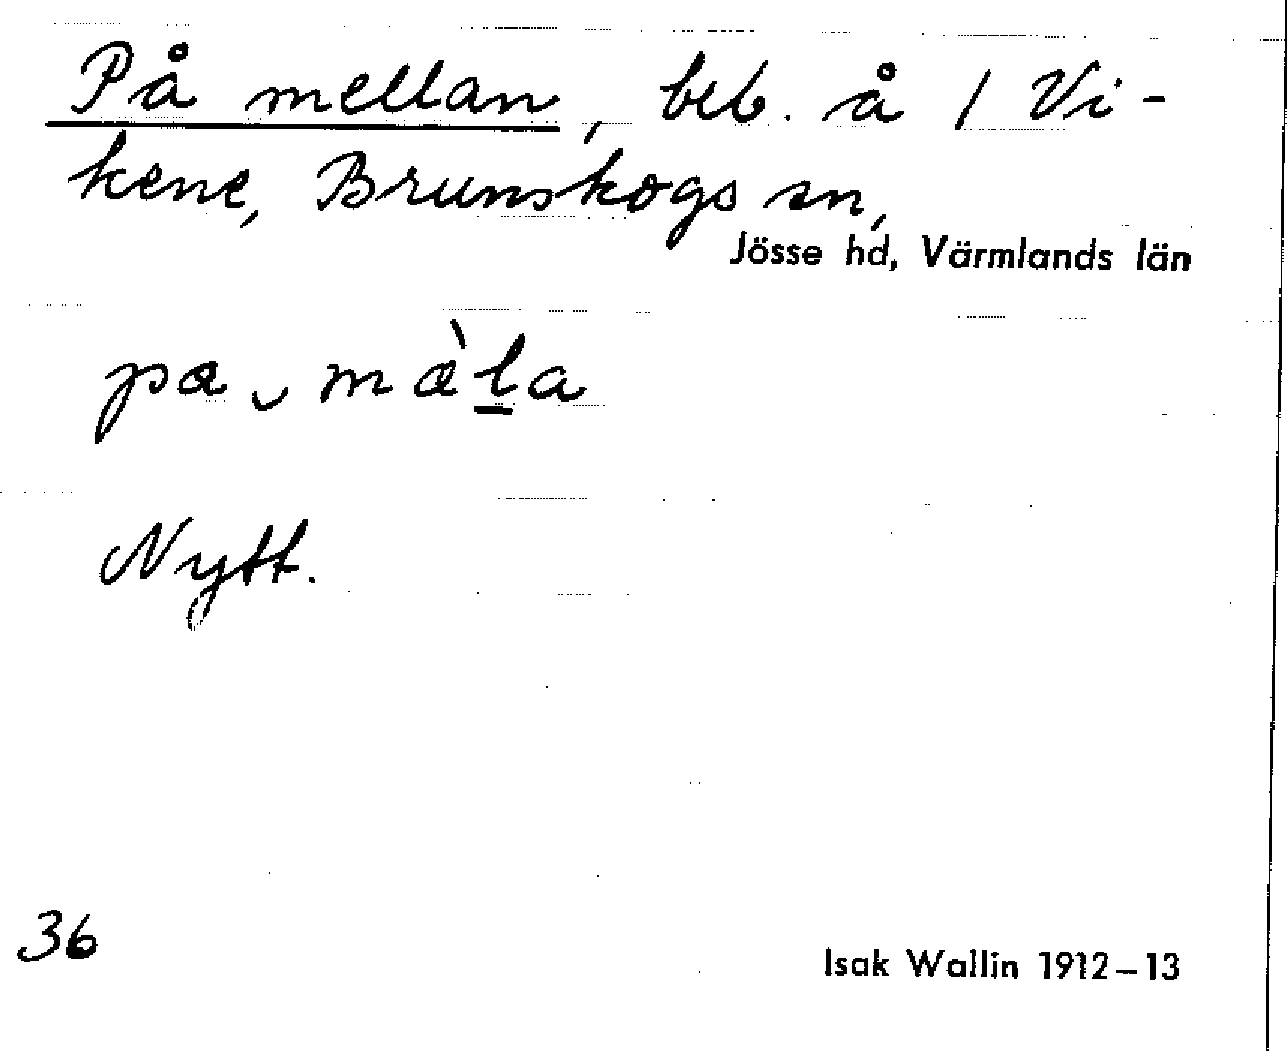 På mellan, beb. å 1 Vi-
kene, Brunskogs sn,
Jösse hd, Värmlands län
pa ̮ mæ̀la
Nytt.
36
Isak Wallin 1912–13